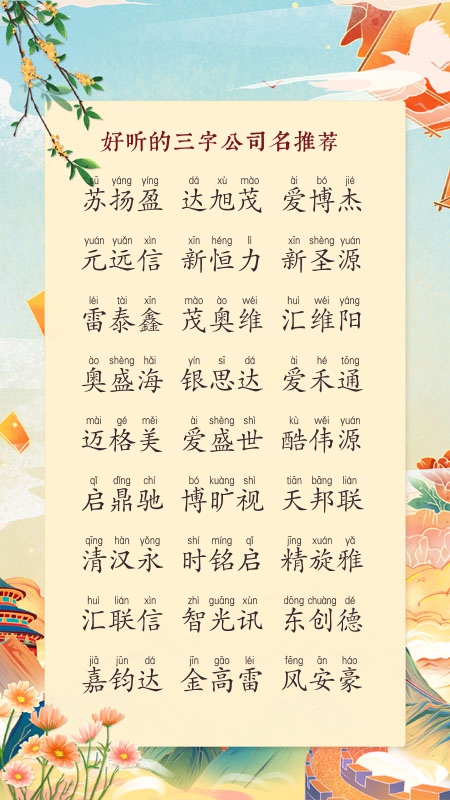 好听的三字公司名推荐
sū yáng yíng dá xù mào ài bó jié
苏扬盈 达旭茂 爱博杰
yuán yuǎn xìn xīn héng lì xīn shèng yuán
元远信 新恒力 新圣源
léi tài xīn mào ào wéi huì wéi yáng
雷泰鑫 茂奥维 汇维阳
ào shèng hǎi yín sī dá ài hé tōng
奥盛海 银思达 爱禾通
mài gé měi ài shèng shì kù wěi yuán
迈格美 爱盛世 酷伟源
qǐ dǐng chí bó kuàng shì tiān bāng lián
启鼎驰 博旷视 天邦联
qīng hàn yǒng shí míng qǐ jīng xuán yǎ
清汉永 时铭启 精旋雅
huì lián xìn zhì guāng xùn dōng chuàng dé
汇联信 智光讯 东创德
jiā jūn dá jīn gāo léi fēng ān háo
嘉钧达 金高雷 风安豪